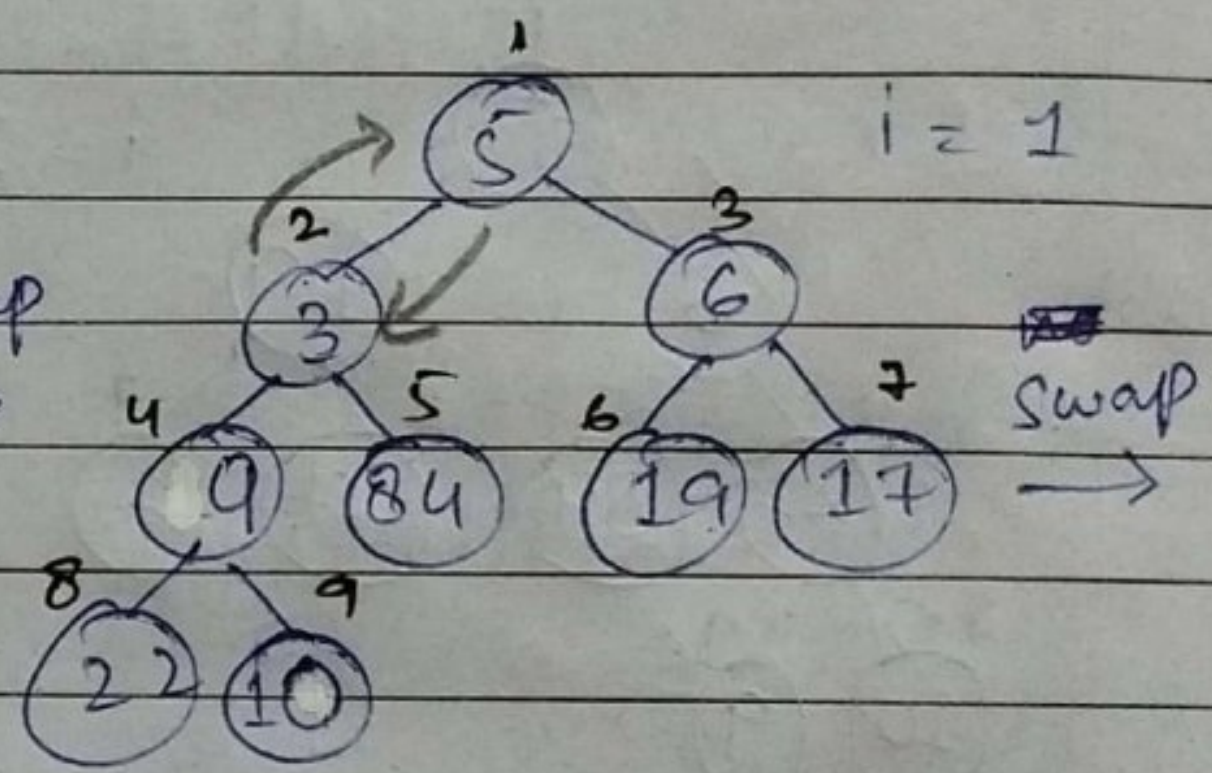 1
5
i = 1
2
3
3
6
p
swap
4
5
6
7
9
84
19
17
8
9
22
10